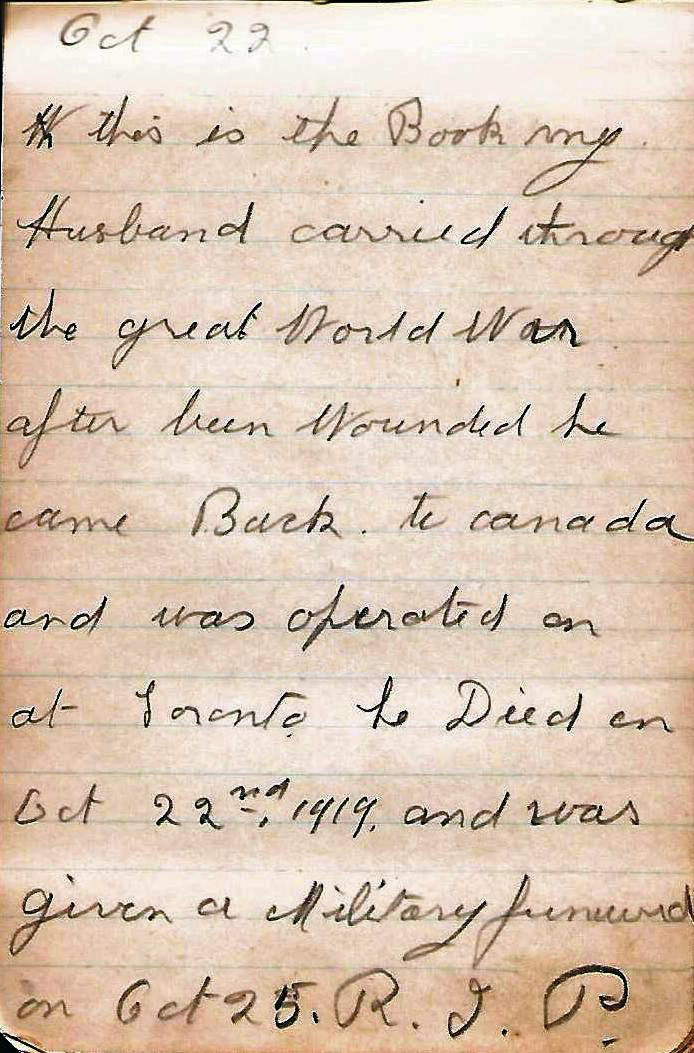 Oct 22
this is the Book my
Husband carried throug
the great World War
after been Wounded he
came Back. to canada
and was operated on
at Toronto he Died on
Oct 22nd, 1919, and was
given a Military
on Oct 25. R. I. P.